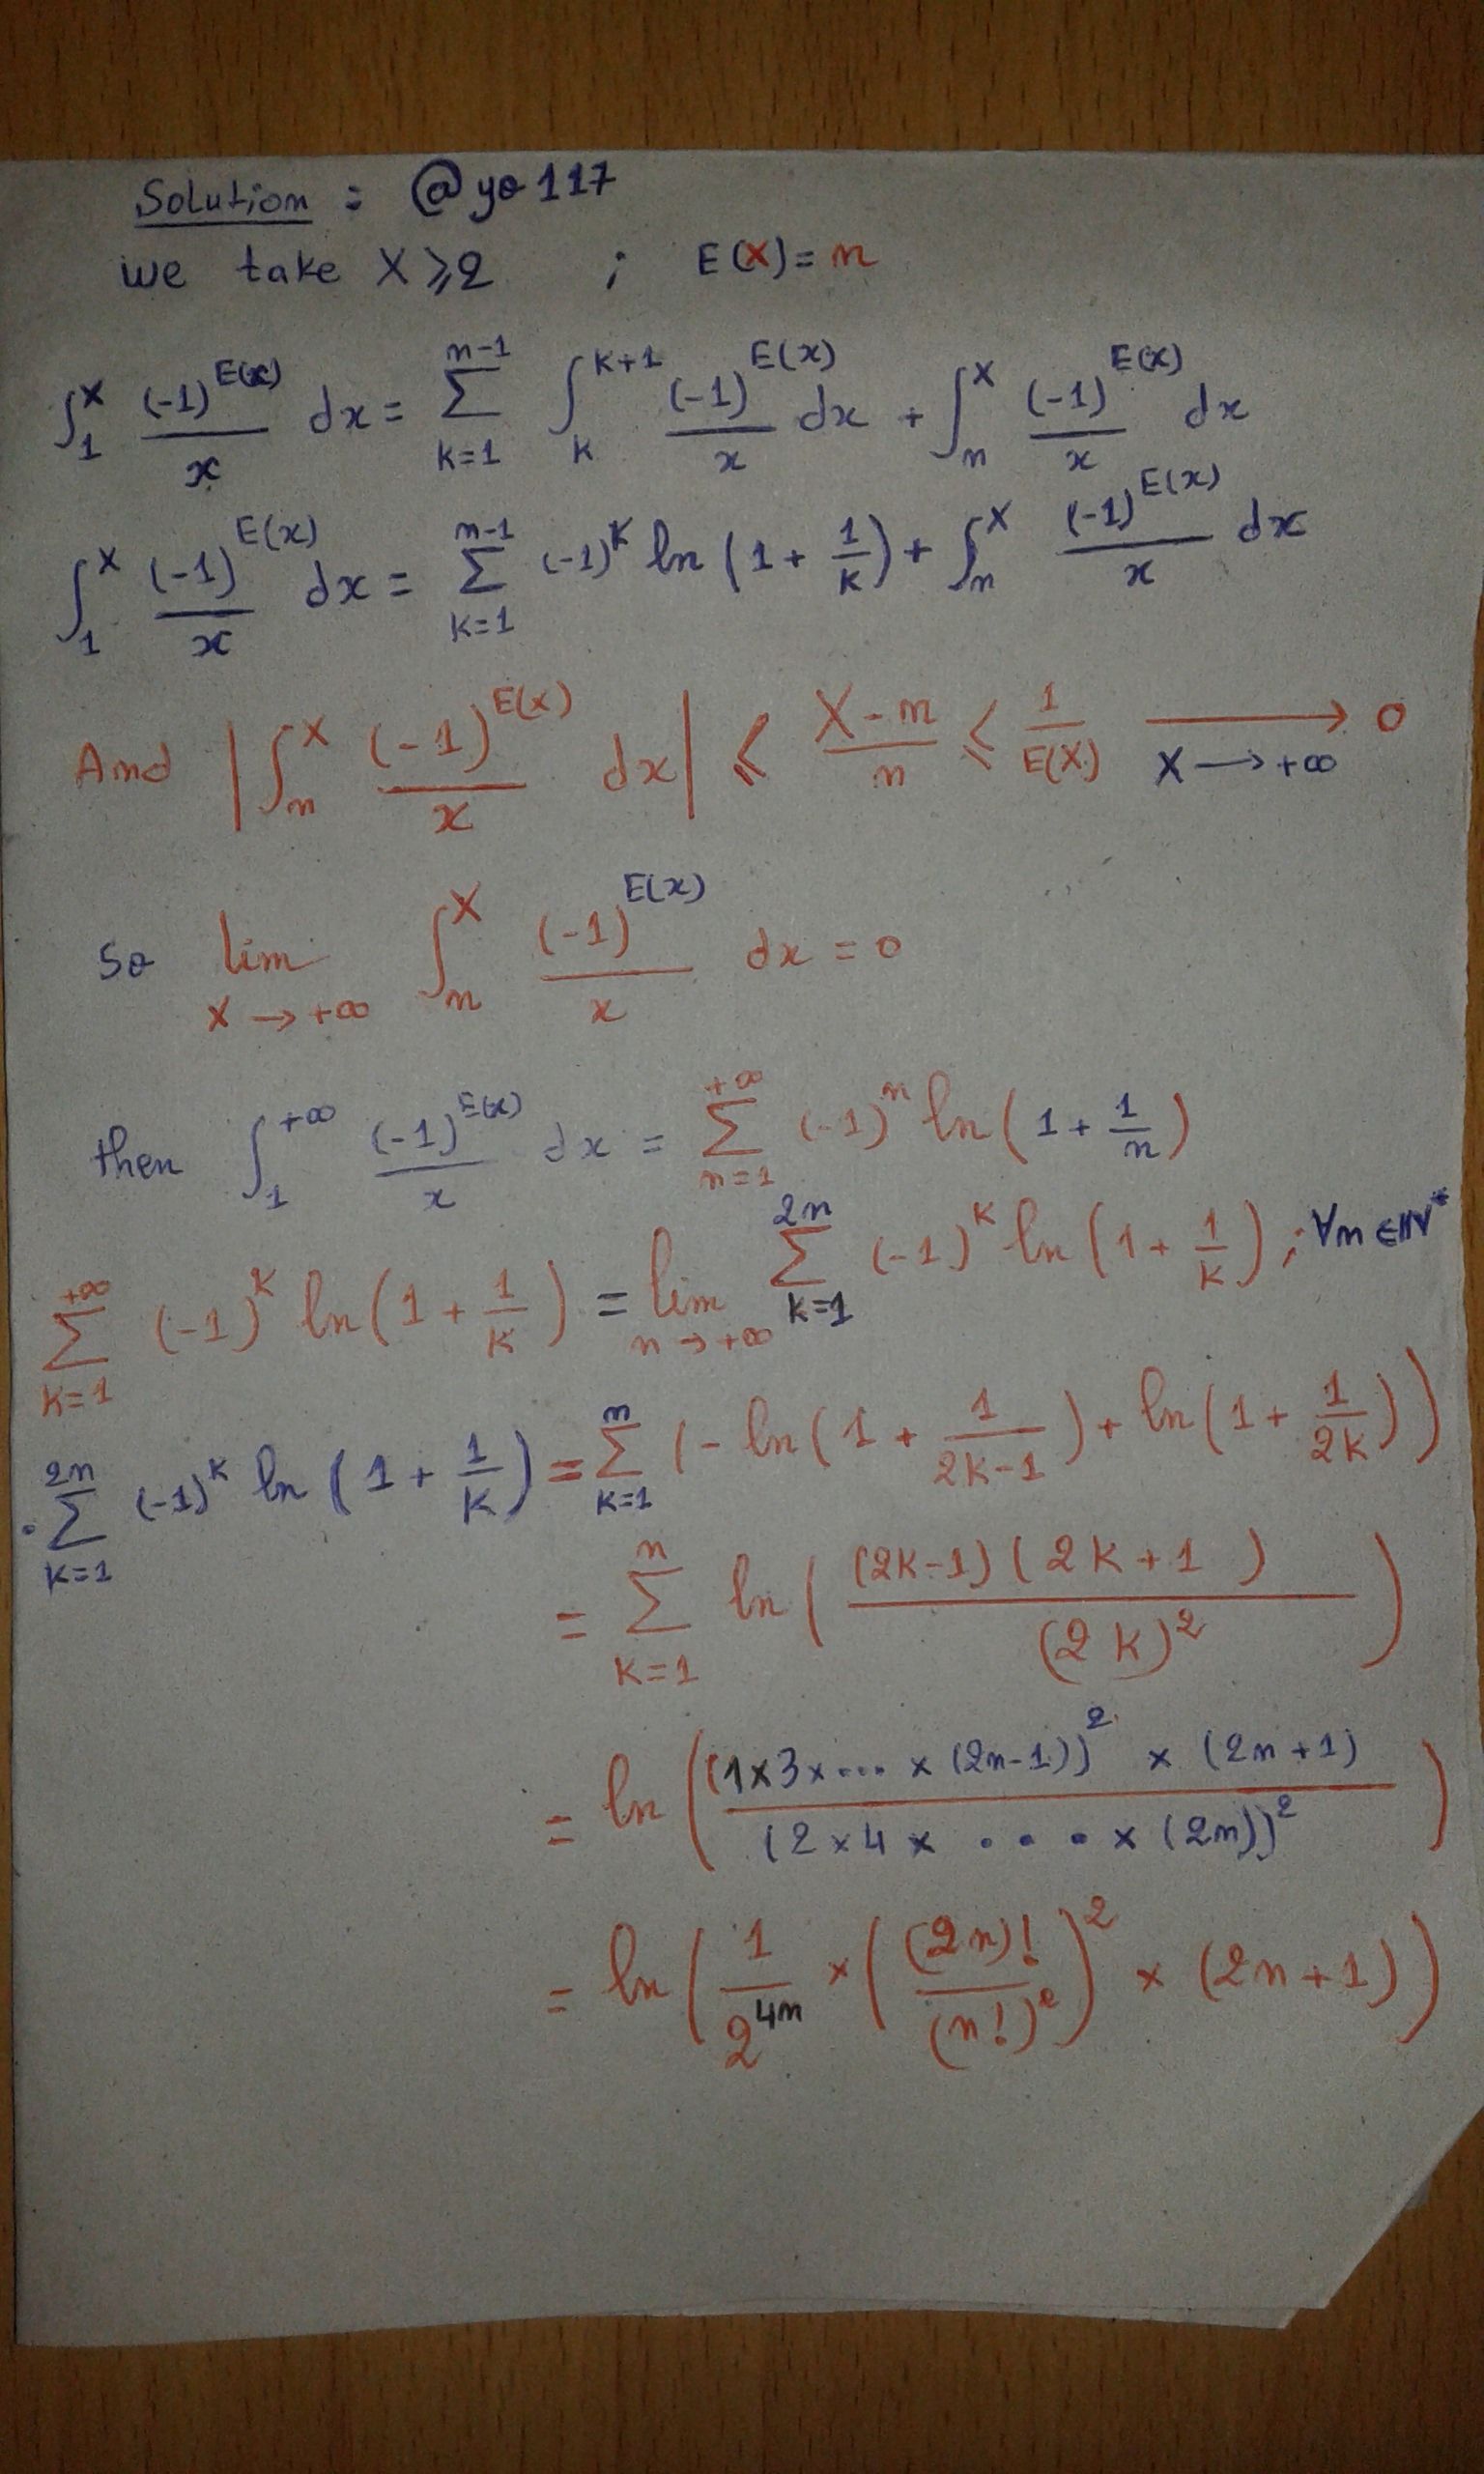 Solution : @yo117
we take X ⩾ 2 ; E(X) = n
∫_1^X (-1)^{E(x)}/x dx = Σ_{k=1}^{n-1} ∫_k^{k+1} (-1)^{E(x)}/x dx + ∫_n^X (-1)^{E(x)}/x dx
∫_1^X (-1)^{E(x)}/x dx = Σ_{k=1}^{n-1} (-1)^k ln(1 + 1/k) + ∫_n^X (-1)^{E(x)}/x dx
And |∫_n^X (-1)^{E(x)}/x dx| ⩽ (X-n)/n ⩽ 1/E(X) ⟶_{X→+∞} 0
So lim_{X→+∞} ∫_n^X (-1)^{E(x)}/x dx = 0
then ∫_1^{+∞} (-1)^{E(x)}/x dx = Σ_{n=1}^{+∞} (-1)^n ln(1 + 1/n)
Σ_{k=1}^{+∞} (-1)^k ln(1 + 1/k) = lim_{n→+∞} Σ_{k=1}^{2n} (-1)^k ln(1 + 1/k) ; ∀n∈ℕ*
• Σ_{k=1}^{2n} (-1)^k ln(1 + 1/k) = Σ_{k=1}^{n} (-ln(1 + 1/(2k-1)) + ln(1 + 1/(2k)))
= Σ_{k=1}^{n} ln((2k-1)(2k+1)/(2k)^2)
= ln((1×3×...×(2n-1))^2 × (2n+1)/(2×4×...×(2n))^2)
= ln(1/2^{4n} × ((2n)!/(n!)^2)^2 × (2n+1))